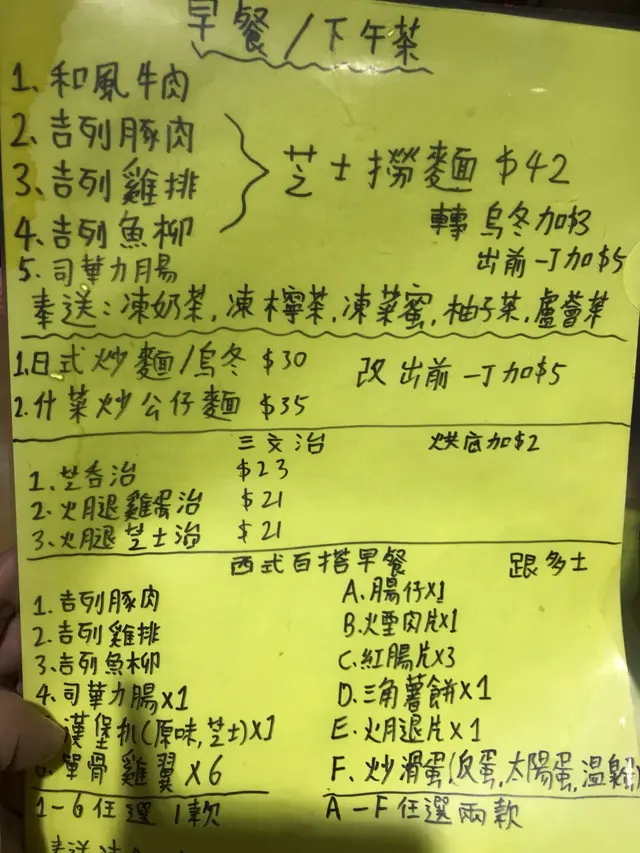 早餐/下午茶
1. 和風牛肉
2. 吉列豚肉
3. 吉列雞排
4. 吉列魚柳
5. 司華力腸
芝士撈麵 $42
轉烏冬加$3
出前一丁加$5
奉送:凍奶茶,凍檸茶,凍菜蜜,柚子茶,蘆薈茶
1.日式炒麵/烏冬 $30
改出前一丁加$5
2.什菜炒公仔麵 $35
三文治 烘底加$2
1. 芝香治 $23
2. 火腿雞蛋治 $21
3. 火腿芝士治 $21
西式百搭早餐 跟多士
1. 吉列豚肉
2. 吉列雞排
3. 吉列魚柳
4. 司華力腸x1
漢堡扒(原味,芝士)x1
單骨雞翼x6
1-6任選1款
A.腸仔x1
B.煙肉片x1
C.紅腸片x3
D.三角薯餅x1
E.火腿片x1
F. 炒滑蛋(反蛋,太陽蛋,溫泉
A-F任選兩款